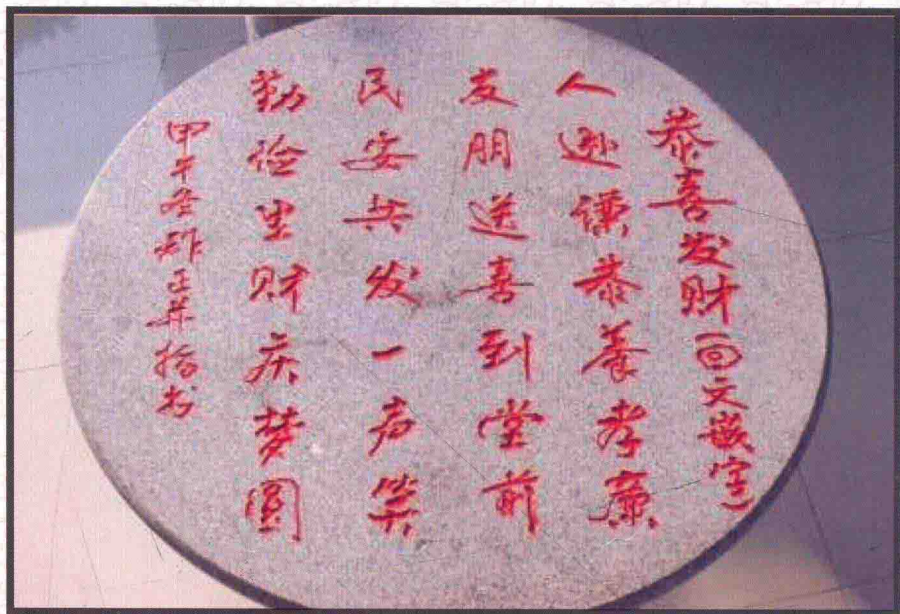 恭喜发财(回文嵌字)
人逊谦恭养孝廉
友朋送喜到堂前
民安共发一声笑
勤俭生财庆梦圆
甲午冬 正并撰书